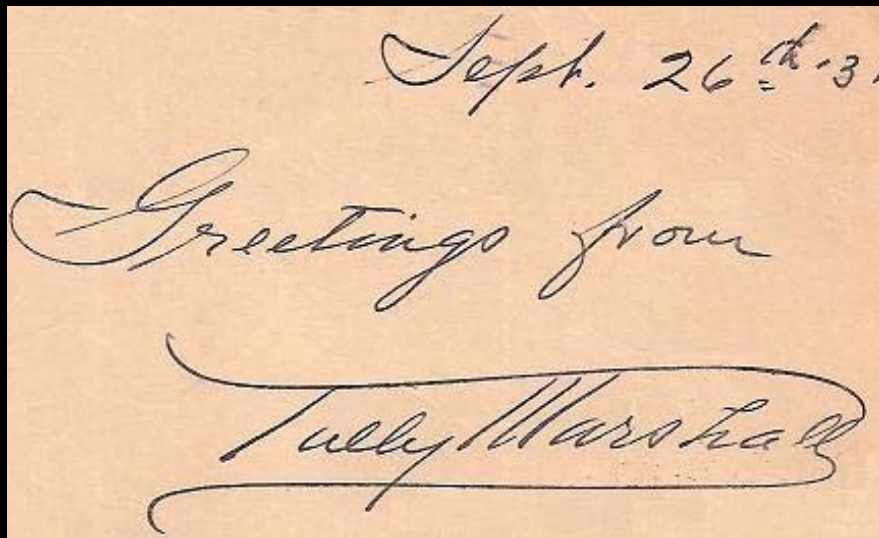 Sept. 26th '3
Greetings from
Tully Marshall